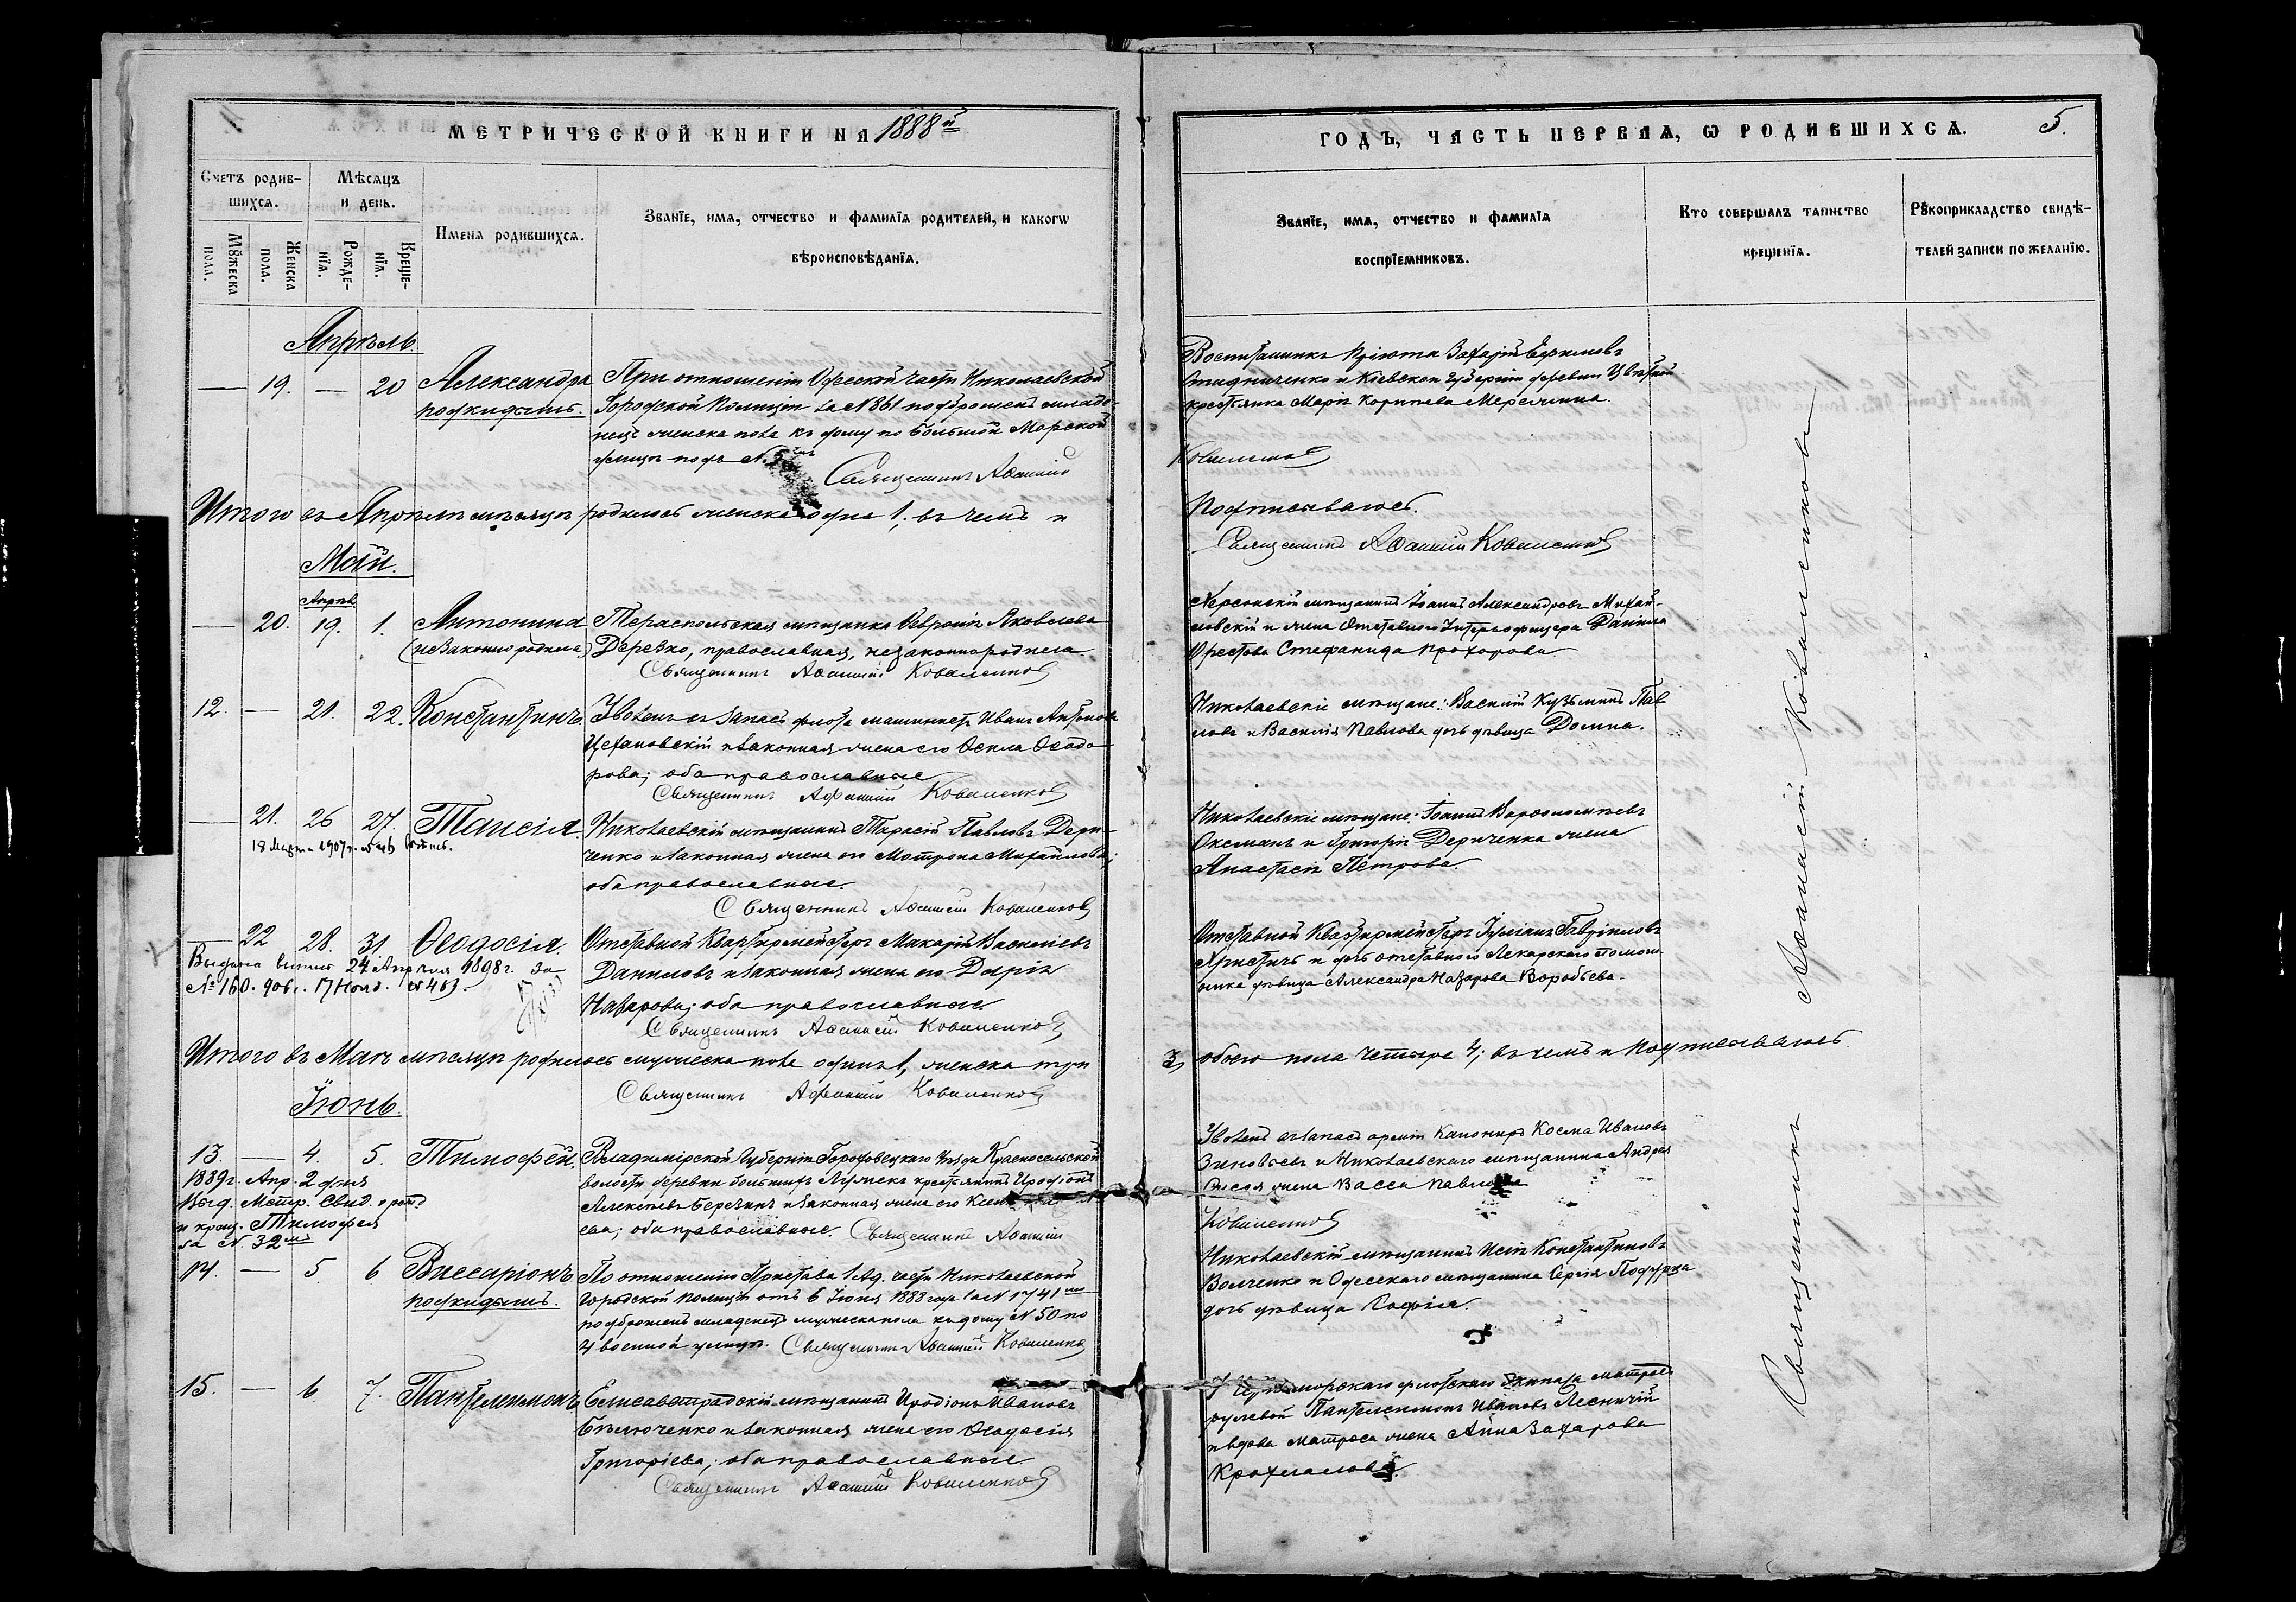 МЕТРИЧЕСКОЙ КНИГИ НА 1888й
ГОДЪ, ЧАСТЬ ПЕРВАЯ, Ѡ РОДИВШИХСѦ. 5.
Счетъ родив-
шихсѧ.
Мѣсяцъ
и день.
Мꙋжеска
пола.
Женска
пола.
Рожде-
нїя.
Креще-
нїя.
Имена родившихсѧ.
Званїе, имѧ, отчество и фамилїя родителей, и какогѡ
вѣроисповѣданїя.
Званїе, имѧ, отчество и фамилїя
воспрїемниковъ.
Кто совершалъ таинство
крещенїя.
Рꙋкоприкладство свидѣ-
телей записи по желанїю.
Апрѣль.
— 19. — 20 Александра
подкидышъ.
При отношеніи Одесской части Николаевской
Городской Полиціи за №361 подброшенъ младе-
нецъ женска пола къ дому по Большой Морской
улицѣ подъ №
Священникъ Аѳанасій
Воспитанникъ Пріюта Захарій Ефимовъ
и Кіевской губерніи деревни Цвѣтной
крестьянка Марія
Коваленковъ
Итого въ Апрѣлѣ мѣсяцѣ родилось женска одна 1, въ чемъ и
Подписываюсь.
Священникъ Аѳанасій Коваленковъ
Май.
Апрѣл.
— 20. 19. 1. Антонина
(незаконно рождена)
Тераспольская мѣщанка Февронія Яковлева
Деревко, православная, незаконнорождена
Священникъ Аѳанасій Коваленковъ
Херсонскій мѣщанинъ Іоаннъ Александровъ Михай-
ловскій и жена Отставного Унтеръ-офицера Даніила
Орестова Стефанида Прохорова.
12. — 21. 22. Константинъ
Уволенъ въ запасъ флота машинистъ Иванъ Антоновъ
Цехановскій и законная жена его Ѳекла Ѳеодо-
рова; оба православные
Священникъ Аѳанасій Коваленковъ
Николаевскіе мѣщане: Василій Кузьминъ Пав-
ловъ и Василія Павлова дочь дѣвица Домна.
— 21. 26 27. Таисія.
18 Марта 1907 г.
Николаевскій мѣщанинъ Тарасій Павловъ Дери-
ченко и законная жена его Матрона Михайлова;
оба православные.
Священникъ Аѳанасій Коваленковъ
Николаевскіе мѣщане: Іоаннъ Варѳоломѣевъ
Оксманъ и Григорія Дериченка жена
Анастасія Петрова.
— 22 28. 31 Ѳеодосія.
Выдана выпись 24 Апрѣля 1898 г. за
№ 160. 906 г. 17 Нояб. № 463.
Отставной Квартирмейстеръ Макарій Василіевъ
Даниловъ и законная жена его Дарія
Назарова; оба православные.
Священникъ Аѳанасій Коваленковъ
Отставной Квартирмейстеръ Іуліанъ Гавріиловъ
Христичъ и дочь отставного Лекарского помощ-
ника дѣвица Александра Назарова Воробьева.
Итого въ Маѣ мѣсяцѣ родилось мужеска пола одинъ 1, женска три
3, обоего пола четыре 4; въ чемъ и подписываюсь
Священникъ Аѳанасій Коваленковъ
Іюнь.
13. — 4. 5. Тимофей.
1889 г. Апр. 2 дня
Выд. Метр. Свид. о рожд.
и крещ. Тимофея
за №. 32мъ
Владимірской Губерніи Гороховецкаго уѣзда Красносельской
волости деревни Большихъ Лужекъ крестьянинъ Иродіонъ
Алексѣевъ Березинъ и законная жена его
ева; оба православные. Священникъ Аѳанасій
Уволенъ въ запасъ арміи Канониръ Косма Ивановъ
Зиновьевъ и Николаевскаго мѣщанина Андрея
жена Васса Павлова
Коваленковъ
14. — 5 6 Виссаріонъ
подкидышъ.
По отношенію Пристава 1 Ад. части Николаевской
городской Полиціи отъ 6 Іюня 1888 года за № 1741мъ
подброшенъ младенецъ мужеска пола къ дому № 50 по
4 военной улицѣ. Священникъ Аѳанасій Коваленковъ
Николаевскій мѣщанинъ Исаія Константиновъ
Волченко и Одесскаго мѣщанина Сергія
дочь дѣвица Софія.
15. — 6. 7. Пантелеимонъ
Елисаветградскій мѣщанинъ Иродіонъ Ивановъ
Бѣлюченко и законная жена его Ѳеодосія
Григоріева; оба православные
Священникъ Аѳанасій Коваленковъ
Черноморскаго флотскаго Экипажа матросъ
рулевой Пантелеимонъ Ивановъ Лесничій
и вдова матроса жена Анна Захарова
Крахмалова.
Священникъ Аѳанасій Коваленковъ